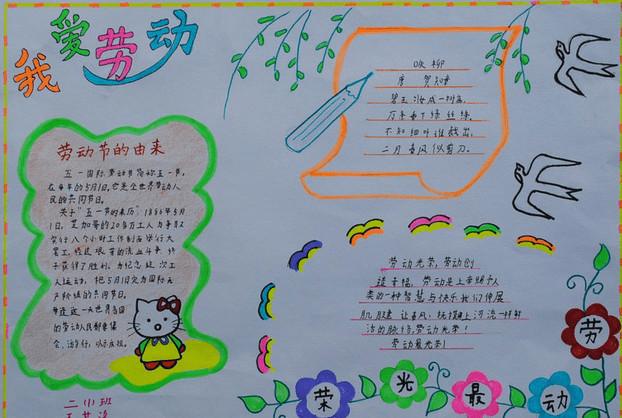 我爱劳动
劳动节的由来
五一国际劳动节简称五一节,
在每年的5月1日,它是全世界劳动人
民的共同节日。
关于"五一节的来历"1886年5月
1日,芝加哥的20多万工人为争取
实行八个小时工作制而举行大
罢工,经过艰苦的流血斗争,终
于获得了胜利。为纪念这次工
人运动,把5月1日定为国际无
产阶级的共同节日。
每逢这一天世界各国
的劳动人民都要集
会、游行,以示庆祝。
二(1)班
咏柳
唐 贺知章
碧玉妆成一树高,
万条垂下绿丝绦,
不知细叶谁裁出,
二月春风似剪刀。
劳动光荣,劳动创
造幸福,劳动是上帝赐予人
类的一种智慧与快乐我们伸展
肌腱 让春风
的脉传,劳动光荣!
劳动最光荣!
劳动最光荣